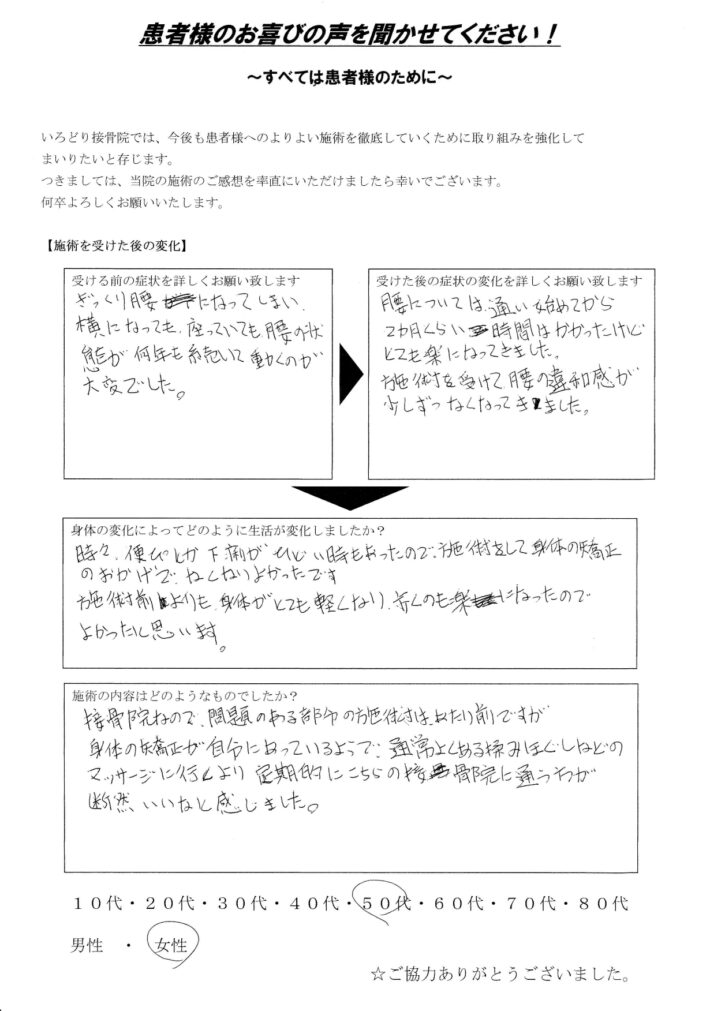 患者様のお喜びの声を聞かせてください！
～すべては患者様のために～
いろどり接骨院では、今後も患者様へのよりよい施術を徹底していくために取り組みを強化して
まいりたいと存じます。
つきましては、当院の施術のご感想を率直にいただけましたら幸いでございます。
何卒よろしくお願いいたします。
【施術を受けた後の変化】
受ける前の症状を詳しくお願い致します
ぎっくり腰になってしまい、
横になっても、座っていても、腰の状
態が何年も続いて動くのが
大変でした。
受けた後の症状の変化を詳しくお願い致します
腰については、通い始めてから
2カ月くらい時間はかかったけど
とても楽になってきました。
施術を受けて腰の違和感が
少しずつなくなってきました。
身体の変化によってどのように生活が変化しましたか？
時々、便ぴとか下痢がひどい時もあったので、施術をして身体の矯正
のおかげで、なくなりよかったです
施術前よりも、身体がとても軽くなり、歩くのも楽になったので
よかったと思います。
施術の内容はどのようなものでしたか？
接骨院なので、問題のある部分の施術は、あたり前ですが
身体の矯正が自分に合っているようで、通常よくある揉みほぐしなどの
マッサージに行くより定期的にこちらの接骨院に通う方が
断然、いいなと感じました。
１０代・２０代・３０代・４０代・５０代・６０代・７０代・８０代
男性 ・ 女性
☆ご協力ありがとうございました。